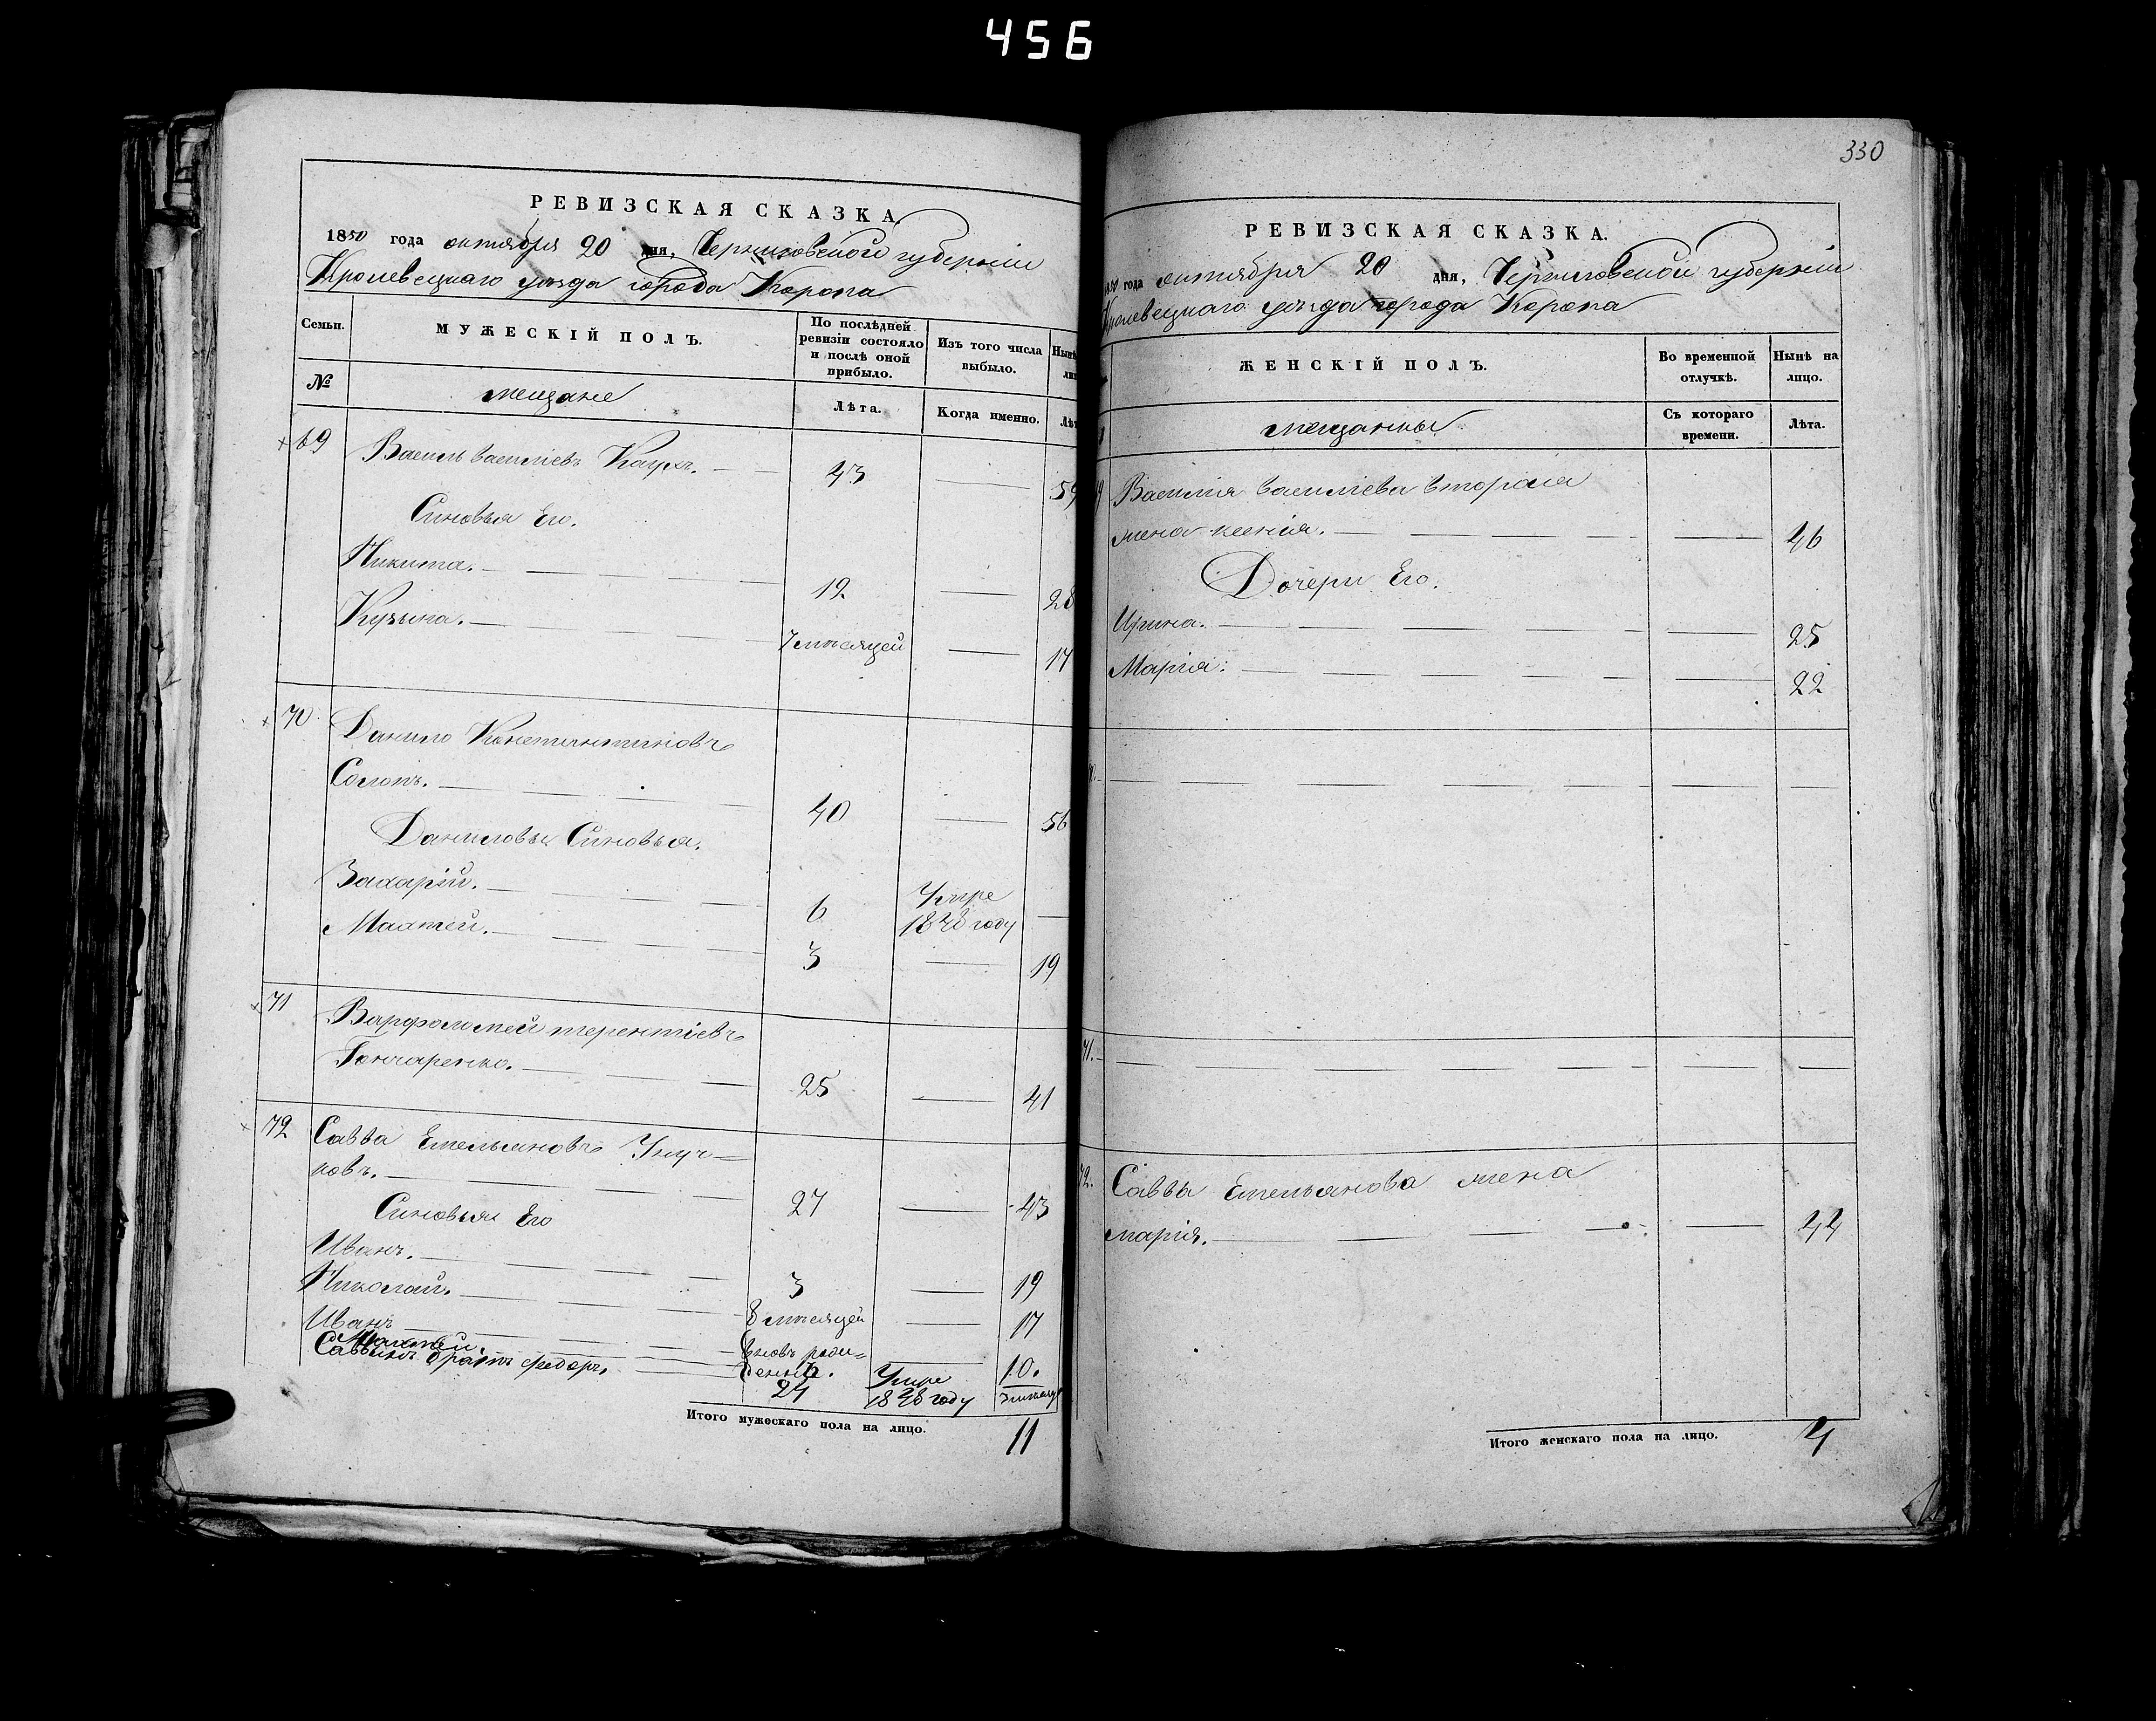 456
РЕВИЗСКАЯ СКАЗКА.
1850 года октября 20 дня, Черниговской губерніи
Кролевецкаго уезда города Коропа
Семьи.
МУЖЕСКІЙ ПОЛЪ.
По послѣдней ревизіи состояло и послѣ оной прибыло.
Изъ того числа выбыло.
№
мещане
Лѣта.
Когда именно.
69
Василь василіевъ
43
59
Синовья Его.
Никита.
19
28
Кузьма.
7 месяцей
17
70
Данило Константиновъ
Солопъ.
40
56
Даниловы Синовья.
Захарій.
6
Умре 1848 году
Матвей.
3
19
71
Варфоломей терентіевъ
Гончаренко.
25
41
72
Савва Емельяновъ
27
43
Синовья Его
Иванъ.
3
19
Николай.
8 месяцей
17
Иванъ
вновь рожденные.
10.
Саввинъ братъ федоръ.
24
Умре 1848 году
Итого мужескаго пола на лицо.
11
330
РЕВИЗСКАЯ СКАЗКА.
года октября 20 дня, Черниговской губерніи
Кролевецкаго уезда города Коропа
ЖЕНСКІЙ ПОЛЪ.
Во временной отлучкѣ.
Нынѣ на лицо.
мещанки
Съ котораго времени.
Лѣта.
Василія василіева вторая
жена ксенія.
46
Дочери Его.
Ирина.
25
Марія.
22
71.
72.
Саввы Емельянова жена
марія.
44
Итого женскаго пола на лицо.
4